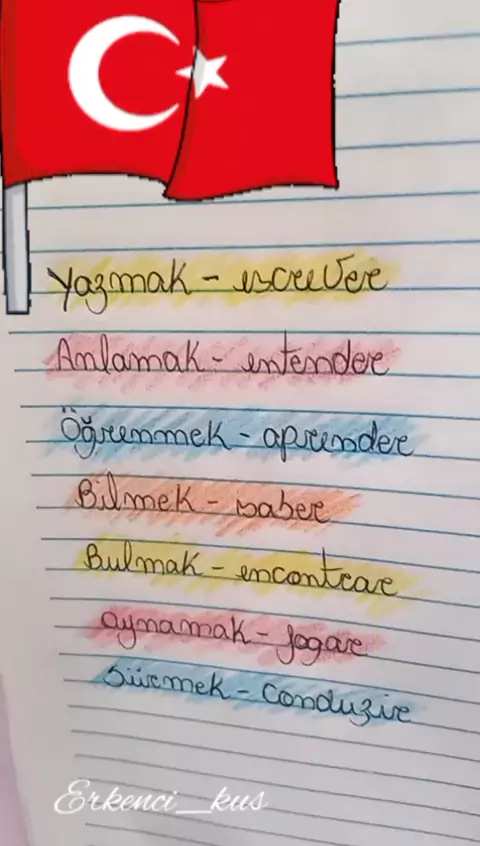 Yazmak - escrever
Anlamak - entender
Öğrenmek - aprender
Bilmek - saber
Bulmak - encontrar
oynamak - jogar
Sürmek - conduzir
Erkenci_kus